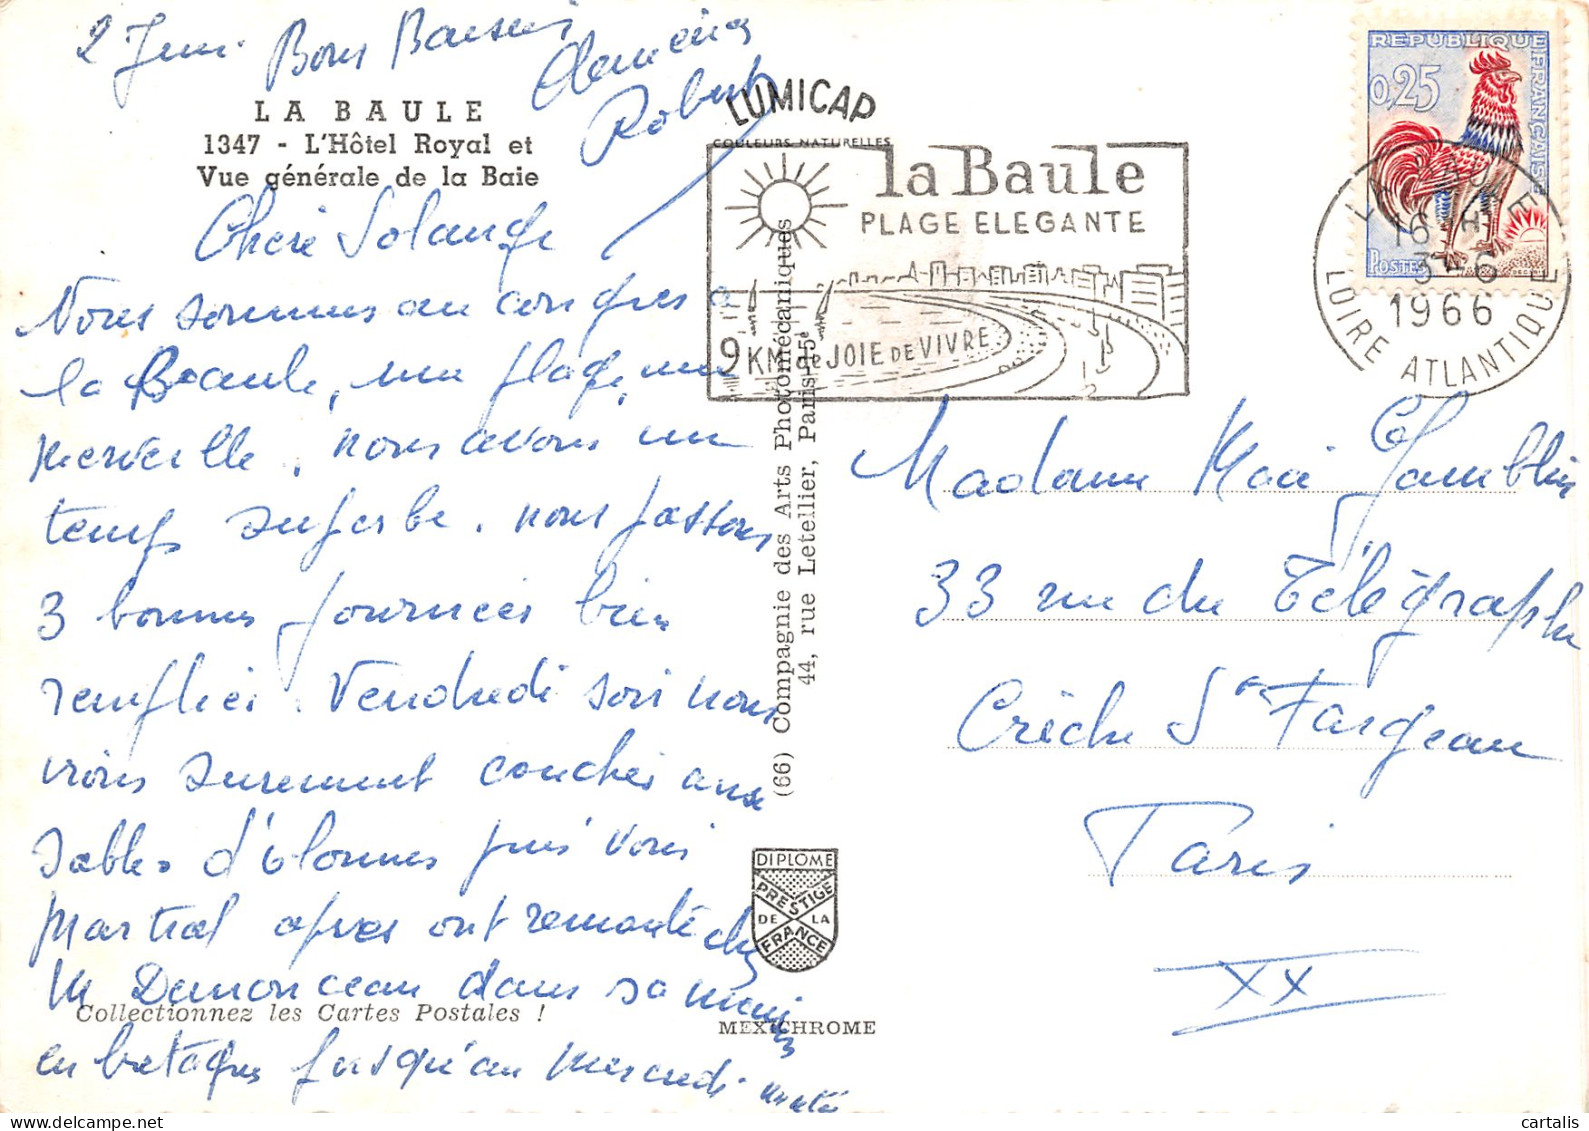 2 Juin Bons Baisers
Clemence
Robert
LA BAULE
1347 - L'Hôtel Royal et
Vue générale de la Baie
LUMICAP
COULEURS NATURELLES
la Baule
PLAGE ELEGANTE
9 KM de JOIE DE VIVRE
REPUBLIQUE FRANÇAISE
0,25
POSTES
LA BAULE
16 H
3-6
1966
LOIRE ATLANTIQUE
Chere Solange
Nous sommes au congres a
la Baule, une plage, une
merveille, nous avons un
temps superbe. nous passons
3 bonnes journées bien
remplies. Vendredi soir nous
irons surement coucher aux
Sables d'olonnes puis voir
Martial apres ont remonte chez
M Demonceau dans sa maison
en bretagne jusqu'au mercredi
Madame Gamblin
33 rue du Télégraphe
Crèche St Fargeau
Paris
XX
(66) Compagnie des Arts Photomécaniques
44, rue Letellier, Paris-15e
DIPLOME
PRESTIGE
DE LA
FRANCE
Collectionnez les Cartes Postales !
MEXICHROME
cartalis